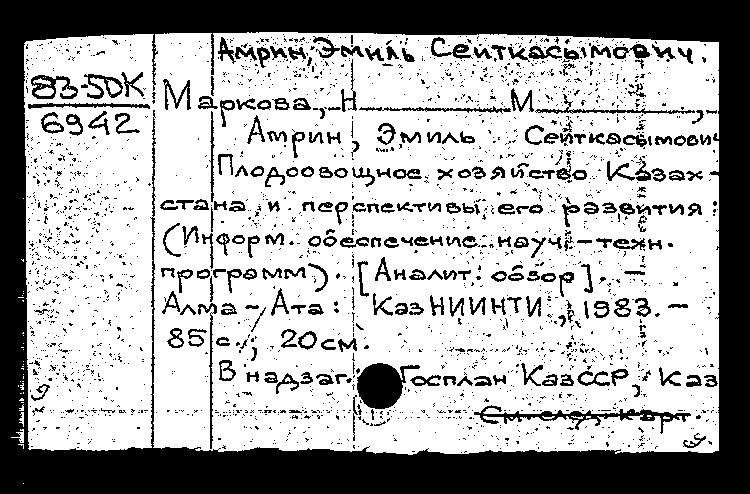 Амрин, Эмиль Сейткасымович.
83-5DK
6942
Маркова, Н М ,
Амрин, Эмиль Сейткасымович
Плодоовощное хозяйство Казах-
стана и перспективы его развития:
(Информ. обеспечение науч.-техн.
программ). [Аналит. обзор]. -
Алма-Ата: КазНИИНТИ, 1983. -
85 с.; 20 см.
В надзаг.: Госплан КазССР, Каз
См. след. карт.